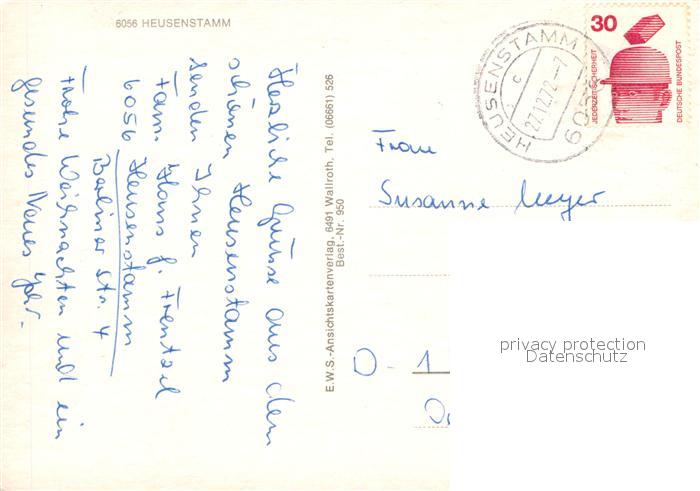 6056 HEUSENSTAMM
Herzliche Grüsse aus dem
schönen Heusenstamm
senden Ihnen
Fam. Hans J. Frentzel
6056 Heusenstamm
Berliner Str. 4
Frohe Weihnachten und ein
gesundes Neues Jahr.
E.W.S.-Ansichtskartenverlag, 6491 Wallroth, Tel. (06661) 526
Best.-Nr. 950
HEUSENSTAMM
c
27.12.72.-7
6056
30
JEDERZEIT SICHERHEIT
DEUTSCHE BUNDESPOST
Frau
Susanne Meyer
D - 1
privacy protection
Datenschutz